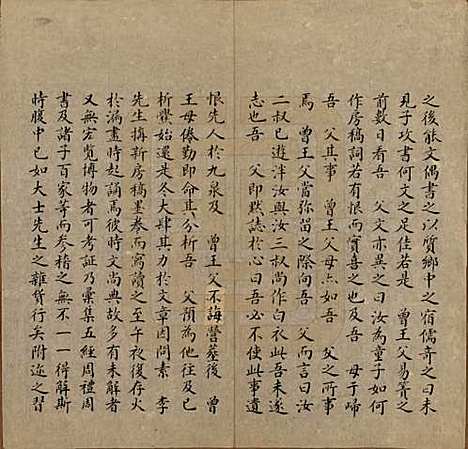 之後能文偶書之以質鄉中之宿儒奇之曰未
見子攻書何文之足佳若是　曾王父易簀之
前數日看吾　父文亦異之曰汝為童子如何
作房稿詞若有恨而實喜之也及吾　母于歸
吾　父其事　曾王父母亦如吾　父之所事
焉　曾王父當弥留之際向吾　父而言曰汝
二叔已遊泮汝與汝三叔尚作白衣此吾未遂
志也吾　父即默誌於心曰吾必不使此事遺
恨先人於九泉及　曾王父不諱營塟後　曾
王母倦勤即命其分析吾　父為他往及已
析爨始還是冬大肆其力於文章因問素　李
先生搆新房稿墨卷而窩讀之至午夜復存火
於漏盡時起誦焉彼時文尚典故多有未解者
又無宏覽博物者可考証乃彙集五經周禮周
書及諸子百家等而參稽之無不一一得解斯
時腹中已如大士先生之雜貨行矣附迩之習